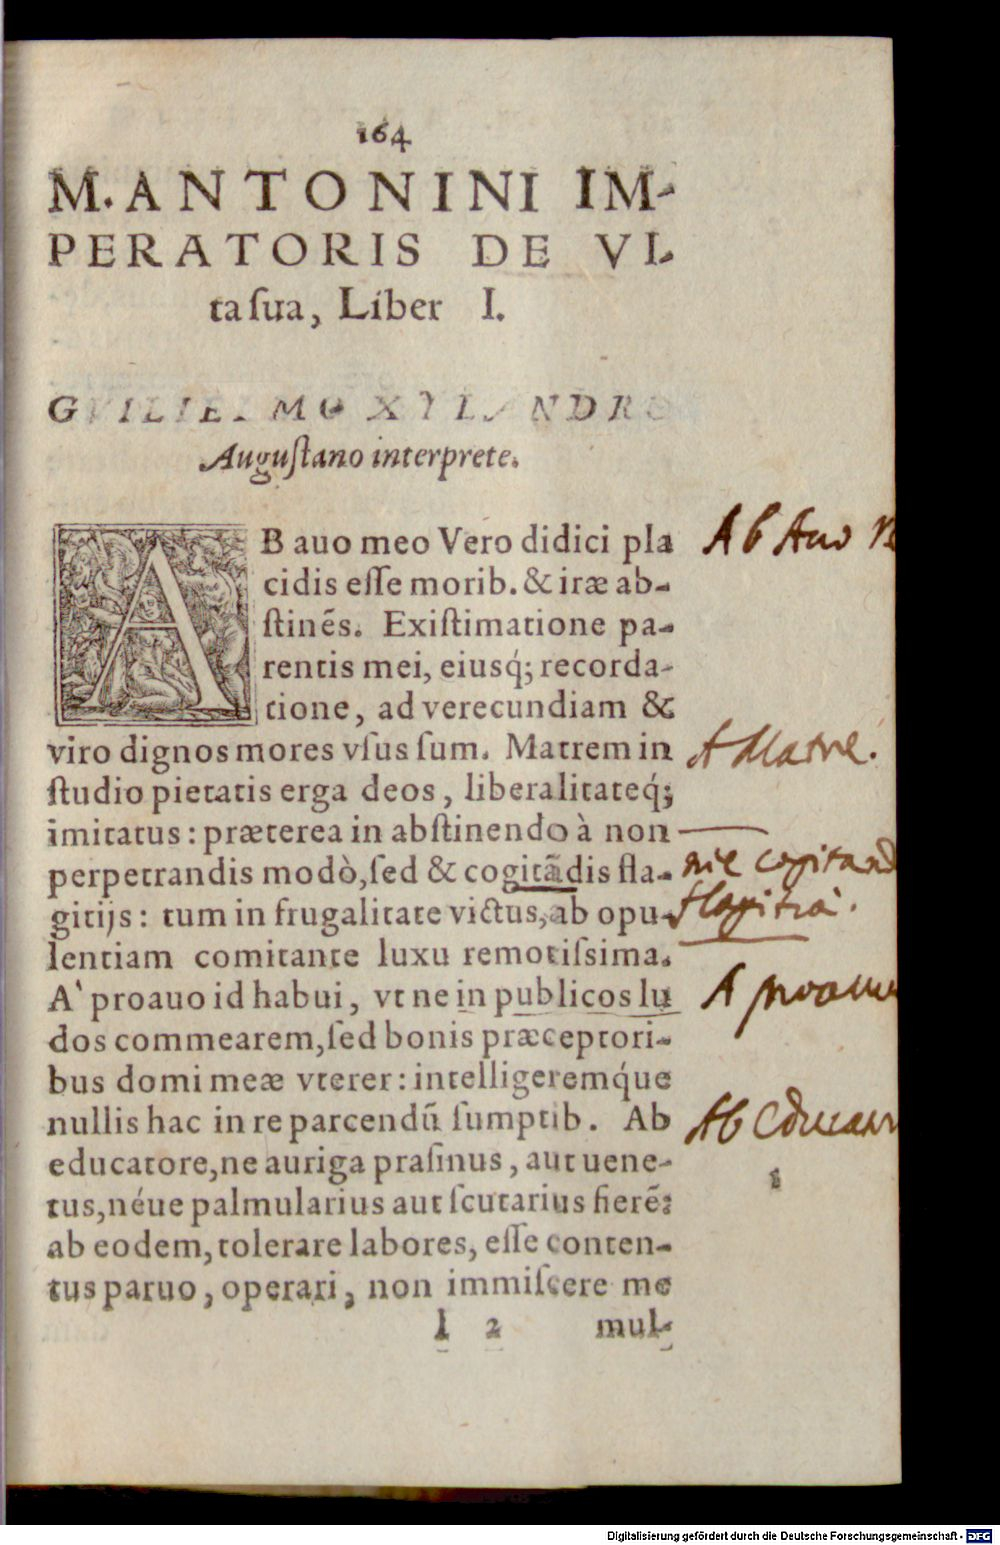 164
M. ANTONINI IM-
PERATORIS DE VI-
ta ſua, Liber I.
GVILIELMO XYLANDRO
Auguſtano interprete.
AB auo meo Vero didici pla
cidis eſſe morib. & iræ ab-
ſtinẽs. Exiſtimatione pa-
rentis mei, eiusq́; recorda-
tione, ad verecundiam &
viro dignos mores vſus ſum. Matrem in
ſtudio pietatis erga deos, liberalitateq́;
imitatus: præterea in abſtinendo à non
perpetrandis modò, ſed & cogitãdis fla-
gitijs: tum in frugalitate victus, ab opu-
lentiam comitante luxu remotiſsima.
A' proauo id habui, vt ne in publicos lu
dos commearem, ſed bonis præceptori-
bus domi meæ vterer: intelligeremq́ue
nullis hac in re parcendũ ſumptib. Ab
educatore, ne auriga praſinus, aut uene-
tus, néue palmularius aut ſcutarius fierẽ:
ab eodem, tolerare labores, eſſe conten-
tus paruo, operari, non immiſcere me
l 2 mul-
Ab Auo
A Matre.
nie cogitand
flagitia.
A proauo
Ab Educat
Digitalisierung gefördert durch die Deutsche Forschungsgemeinschaft - DFG